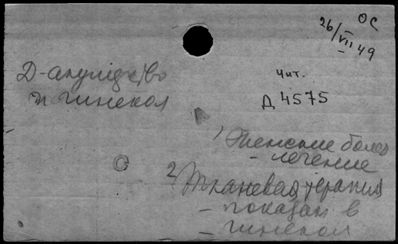 ОС
26/VII 49
Д-акушерство
и гинекол
Чит.
Д 4575
1) Женские болез
- лечение
2) Тканевая терапия
- показан в
- гинекол